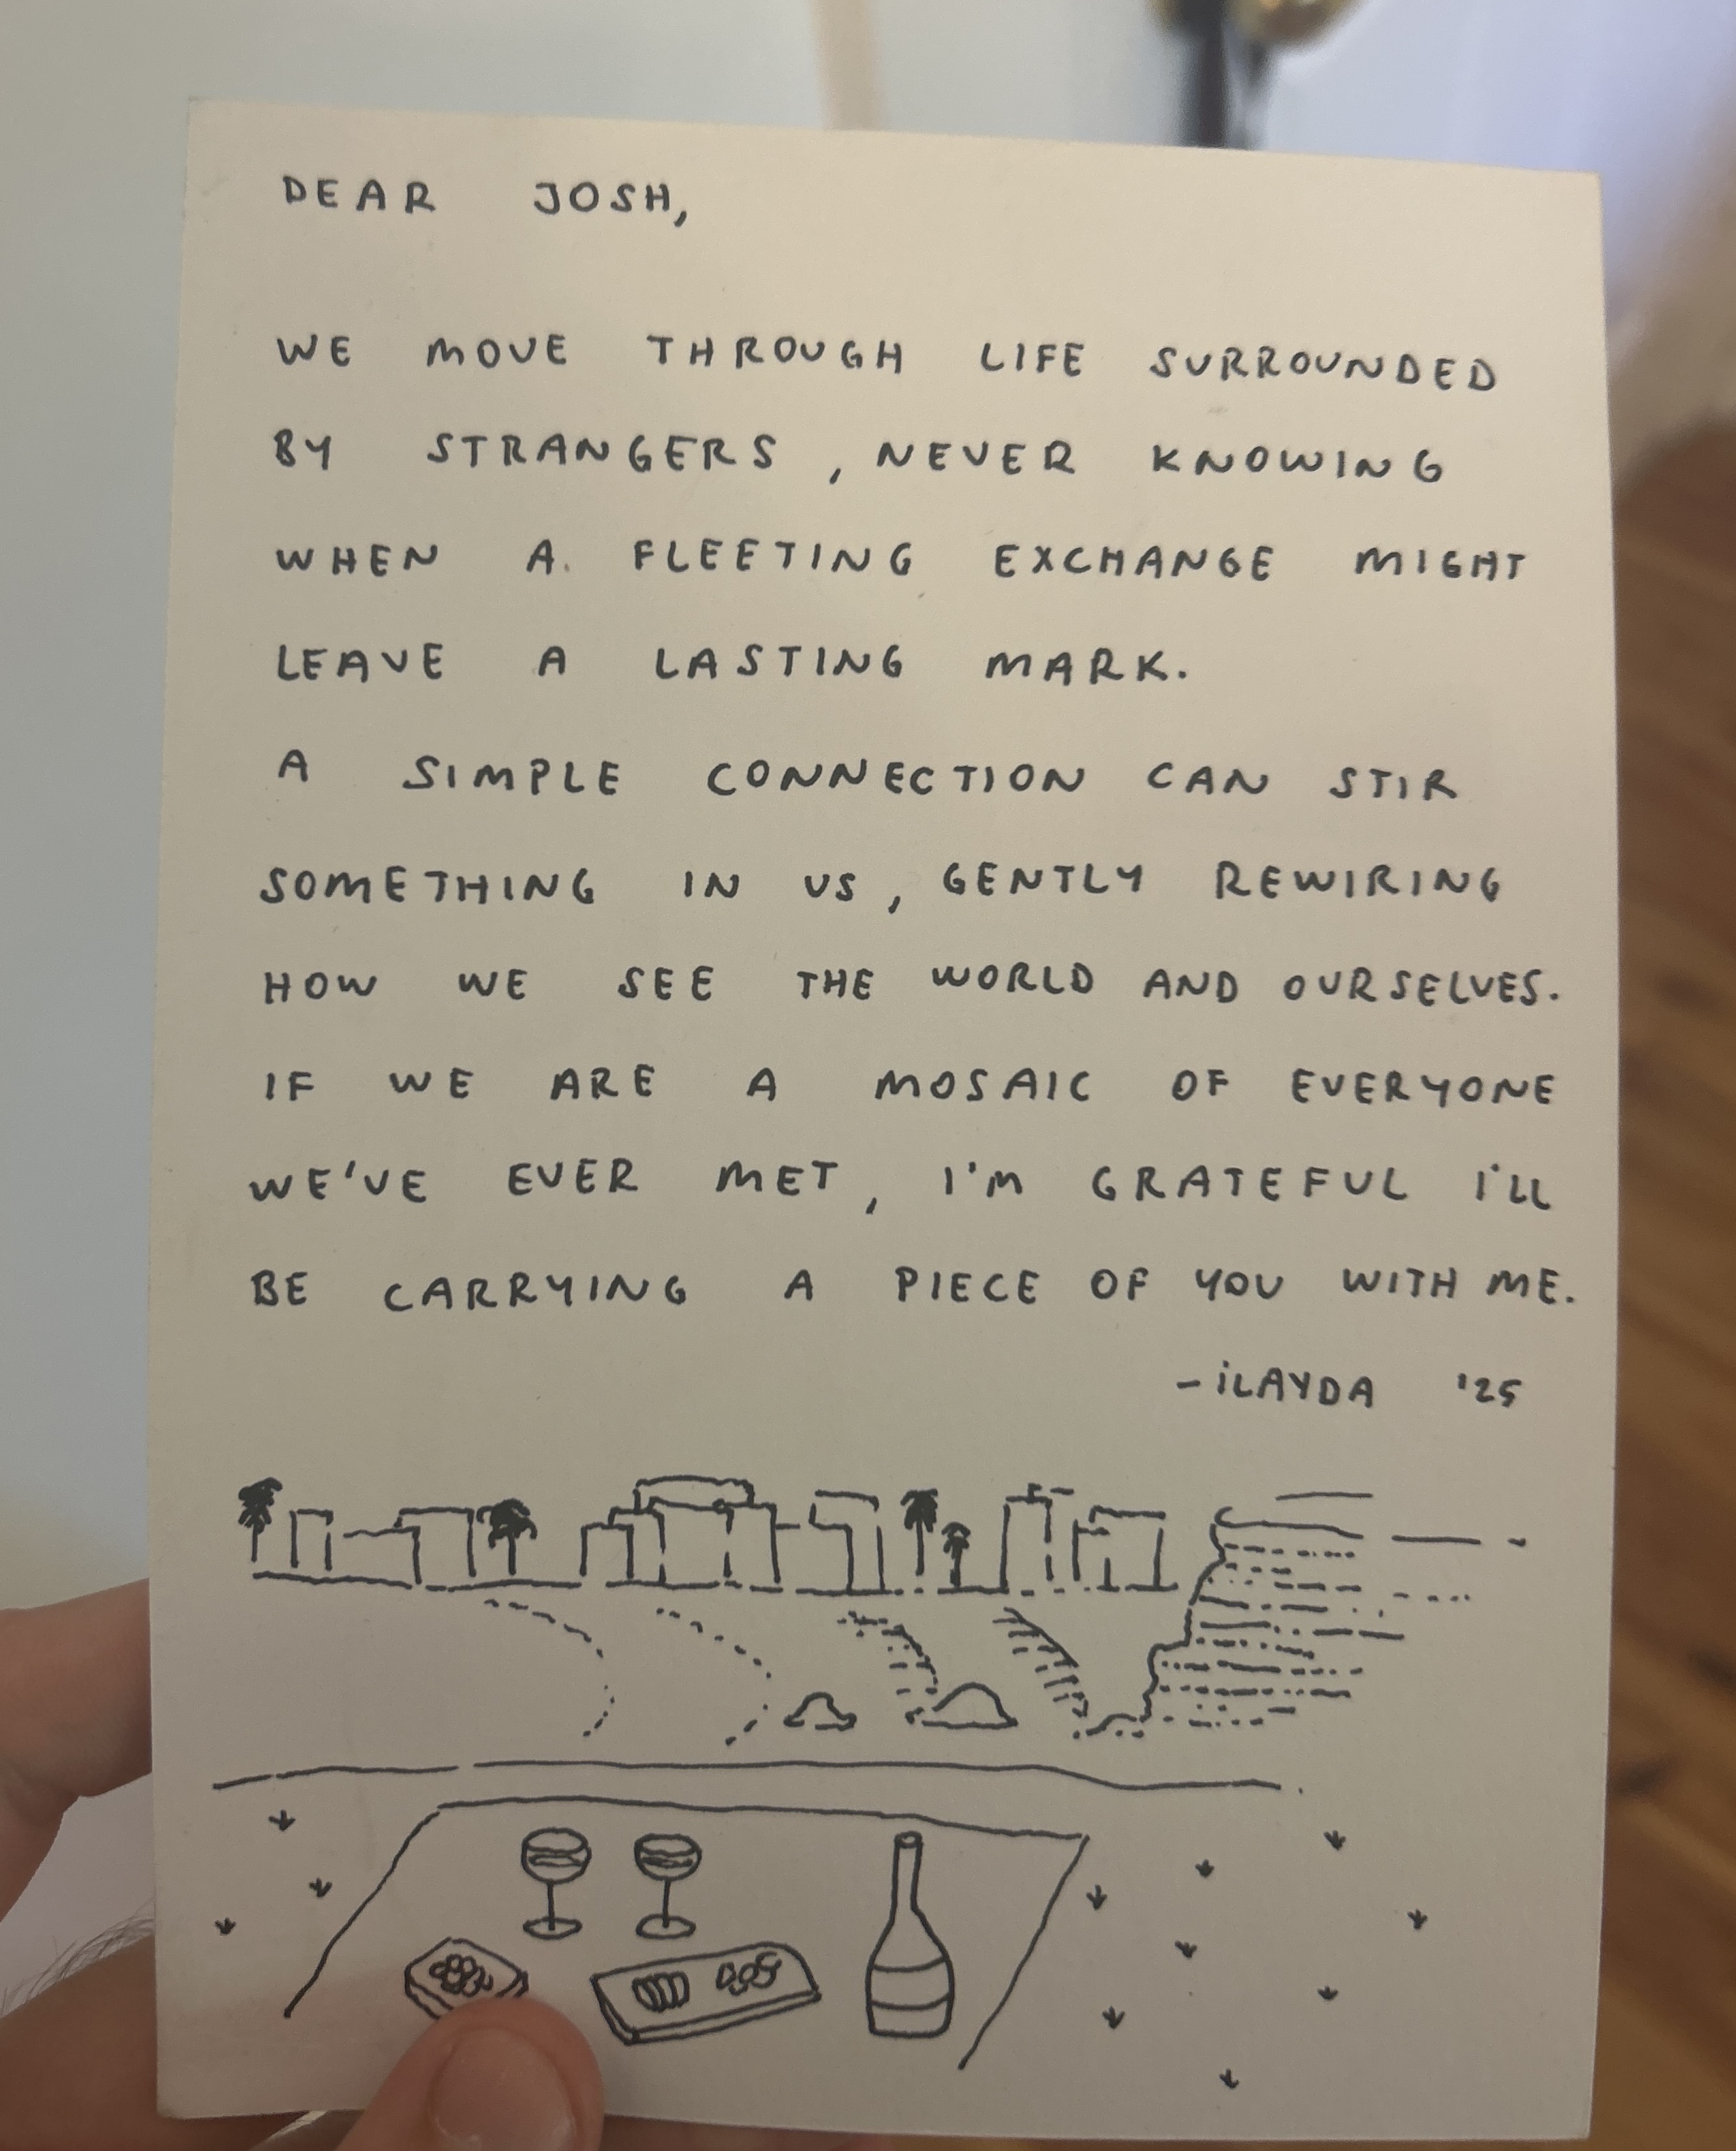 DEAR JOSH,
WE MOVE THROUGH LIFE SURROUNDED
BY STRANGERS, NEVER KNOWING
WHEN A FLEETING EXCHANGE MIGHT
LEAVE A LASTING MARK.
A SIMPLE CONNECTION CAN STIR
SOMETHING IN US, GENTLY REWIRING
HOW WE SEE THE WORLD AND OURSELVES.
IF WE ARE A MOSAIC OF EVERYONE
WE'VE EVER MET, I'M GRATEFUL I'LL
BE CARRYING A PIECE OF YOU WITH ME.
- İLAYDA '25